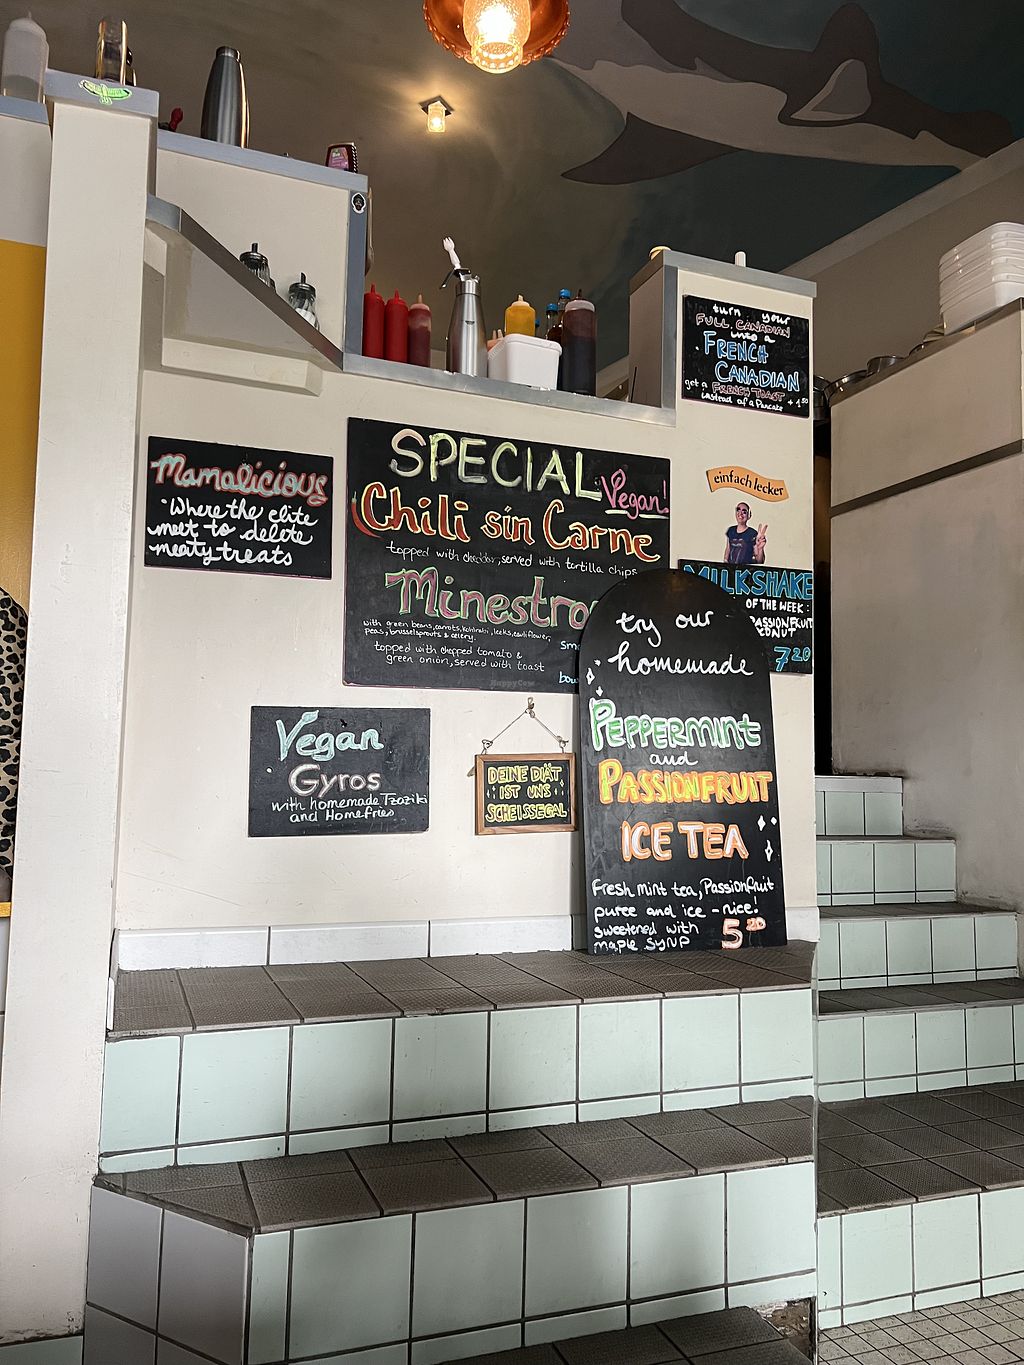 turn your
FULL CANADIAN
into a
FRENCH
CANADIAN
get a FRENCH TOAST + 1.50
instead of a Pancake
Mamalicious
Where the elite
meet to delete
meaty treats
SPECIAL
Vegan!
Chili sin Carne
topped with cheddar, served with tortilla chips
Minestro
with green beans, carrots, kohlrabi, leeks, cauliflower,
peas, brusselsprouts & celery.
topped with chopped tomato &
green onion, served with toast
einfach lecker
MILKSHAKE
OF THE WEEK:
PASSIONFRUIT
7 20
try our
homemade
PEPPERMINT
and
PASSIONFRUIT
ICE TEA
Fresh mint tea, Passionfruit
puree and ice - nice!
sweetened with
maple syrup
5 20
Vegan
Gyros
with homemade Tzaziki
and Homefries
DEINE DIÄT
IST UNS
SCHEISSEGAL
HappyCow